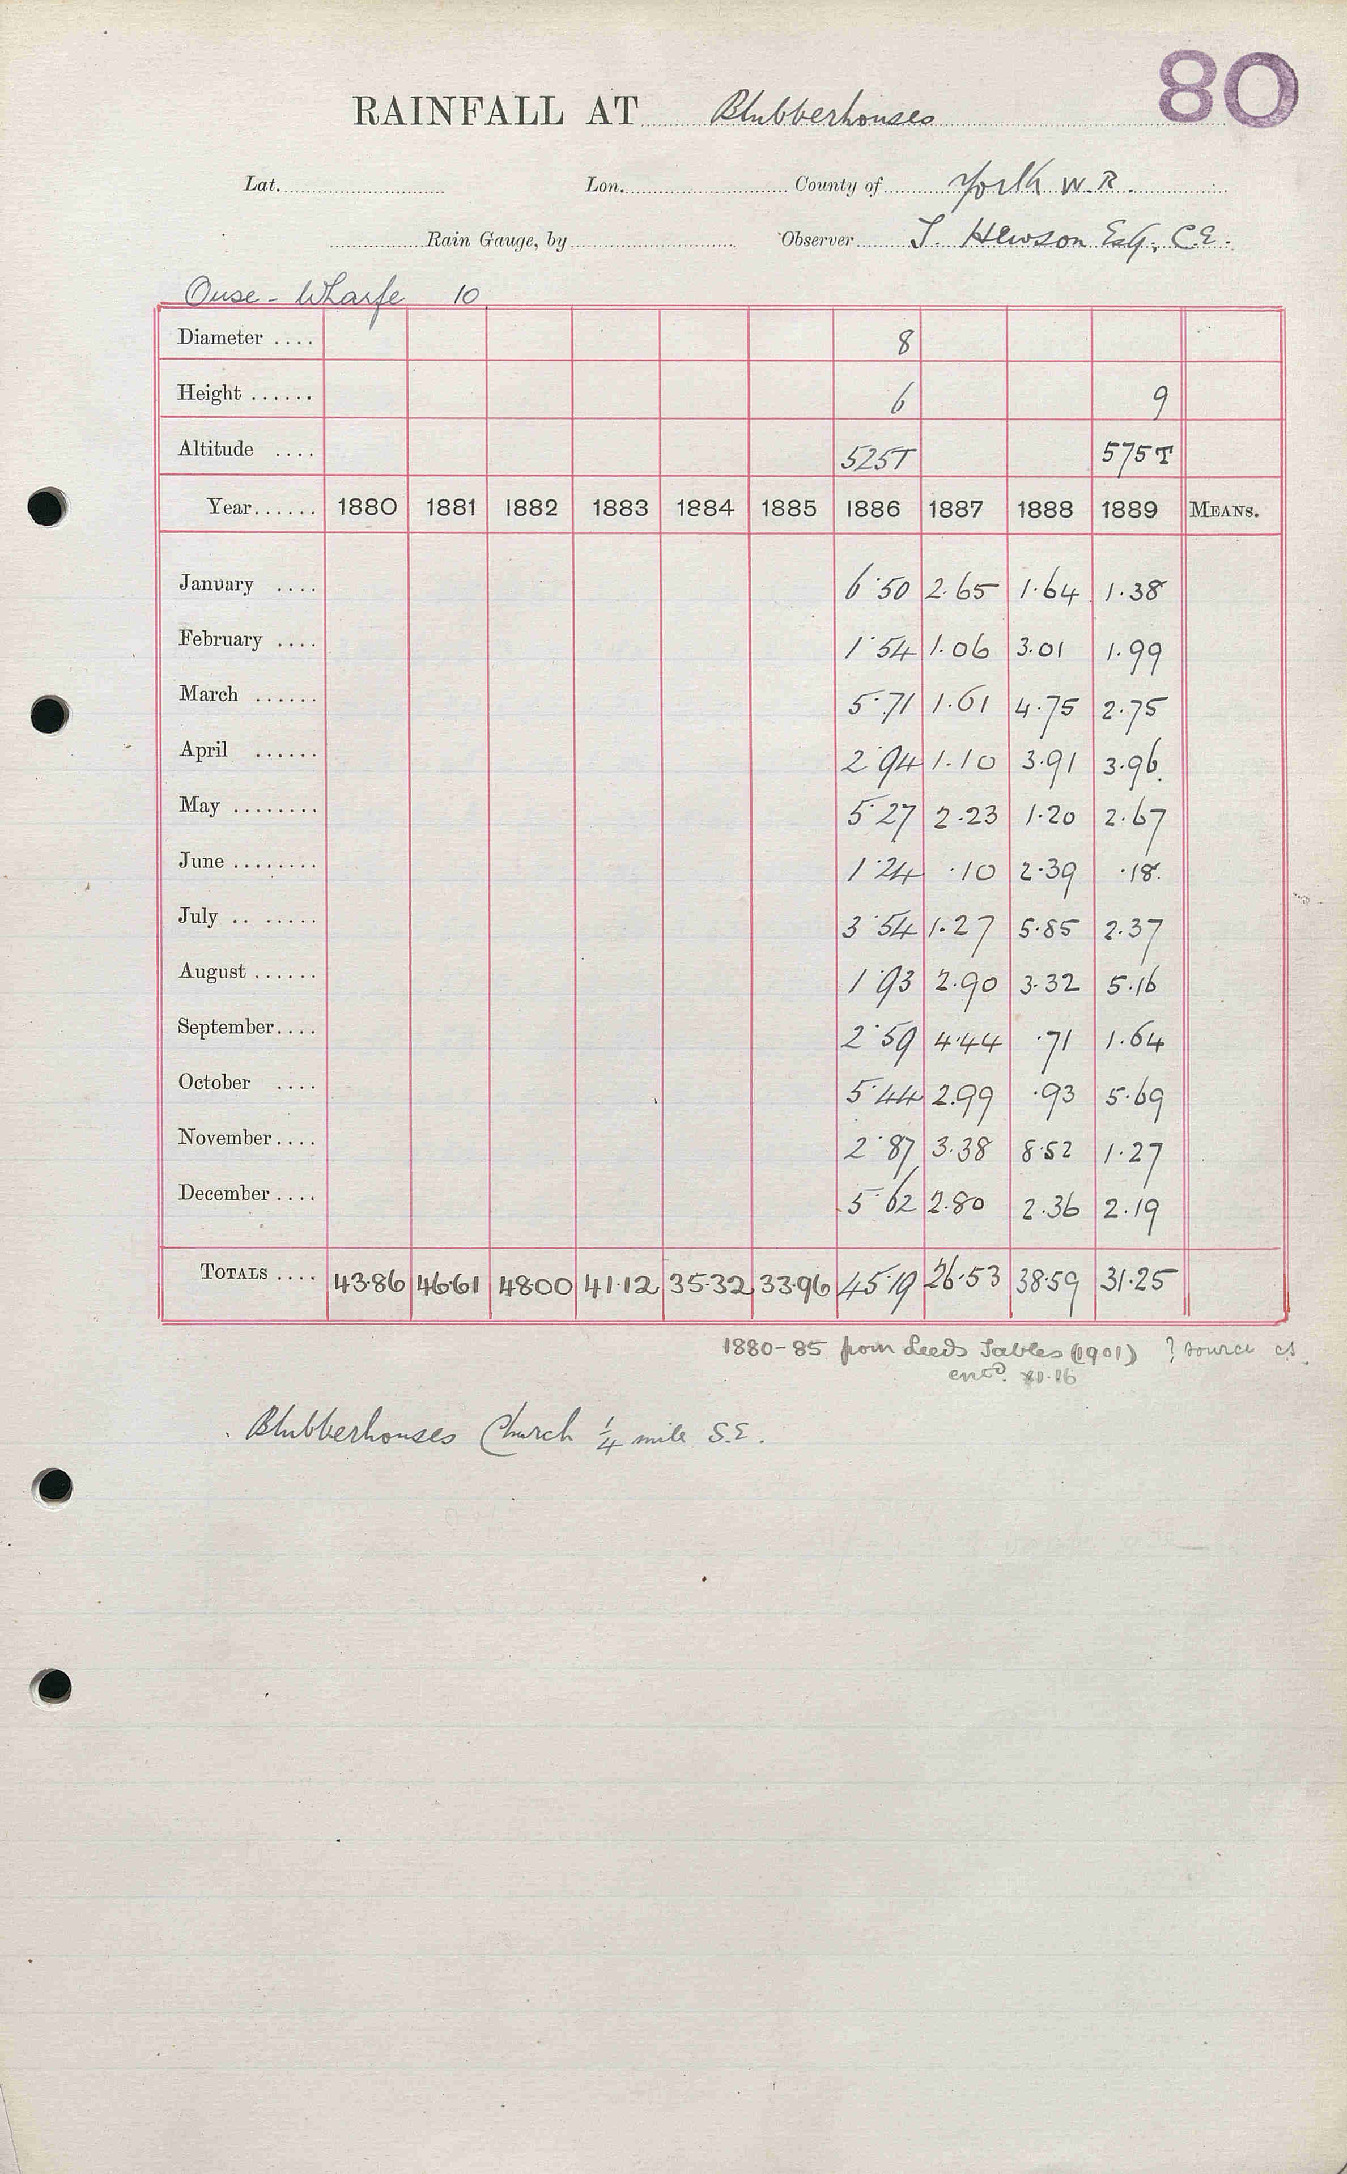 80
RAINFALL AT Blubberhouses
Lat. Lon. County of York W.R.
Rain Gauge, by Observer T. Hewson Esq. C.E.
Ouse - Wharfe 10
Diameter .... 8
Height ...... 6 9
Altitude .... 525T 575T
Year...... 1880 1881 1882 1883 1884 1885 1886 1887 1888 1889 MEANS.
January .... 6.50 2.65 1.64 1.38
February .... 1.54 1.06 3.01 1.99
March ...... 5.71 1.61 4.75 2.75
April ...... 2.94 1.10 3.91 3.96
May ........ 5.27 2.23 1.20 2.67
June ........ 1.24 .10 2.39 .18
July .. ..... 3.54 1.27 5.85 2.37
August ...... 1.93 2.90 3.32 5.16
September.... 2.59 4.44 .71 1.64
October .... 5.44 2.99 .93 5.69
November.... 2.87 3.38 8.52 1.27
December.... 5.62 2.80 2.36 2.19
TOTALS .... 43.86 46.61 48.00 41.12 35.32 33.96 45.19 26.53 38.59 31.25
1880-85 from Leeds Tables (1901) ? source as
Blubberhouses Church 1/4 mile S.E.